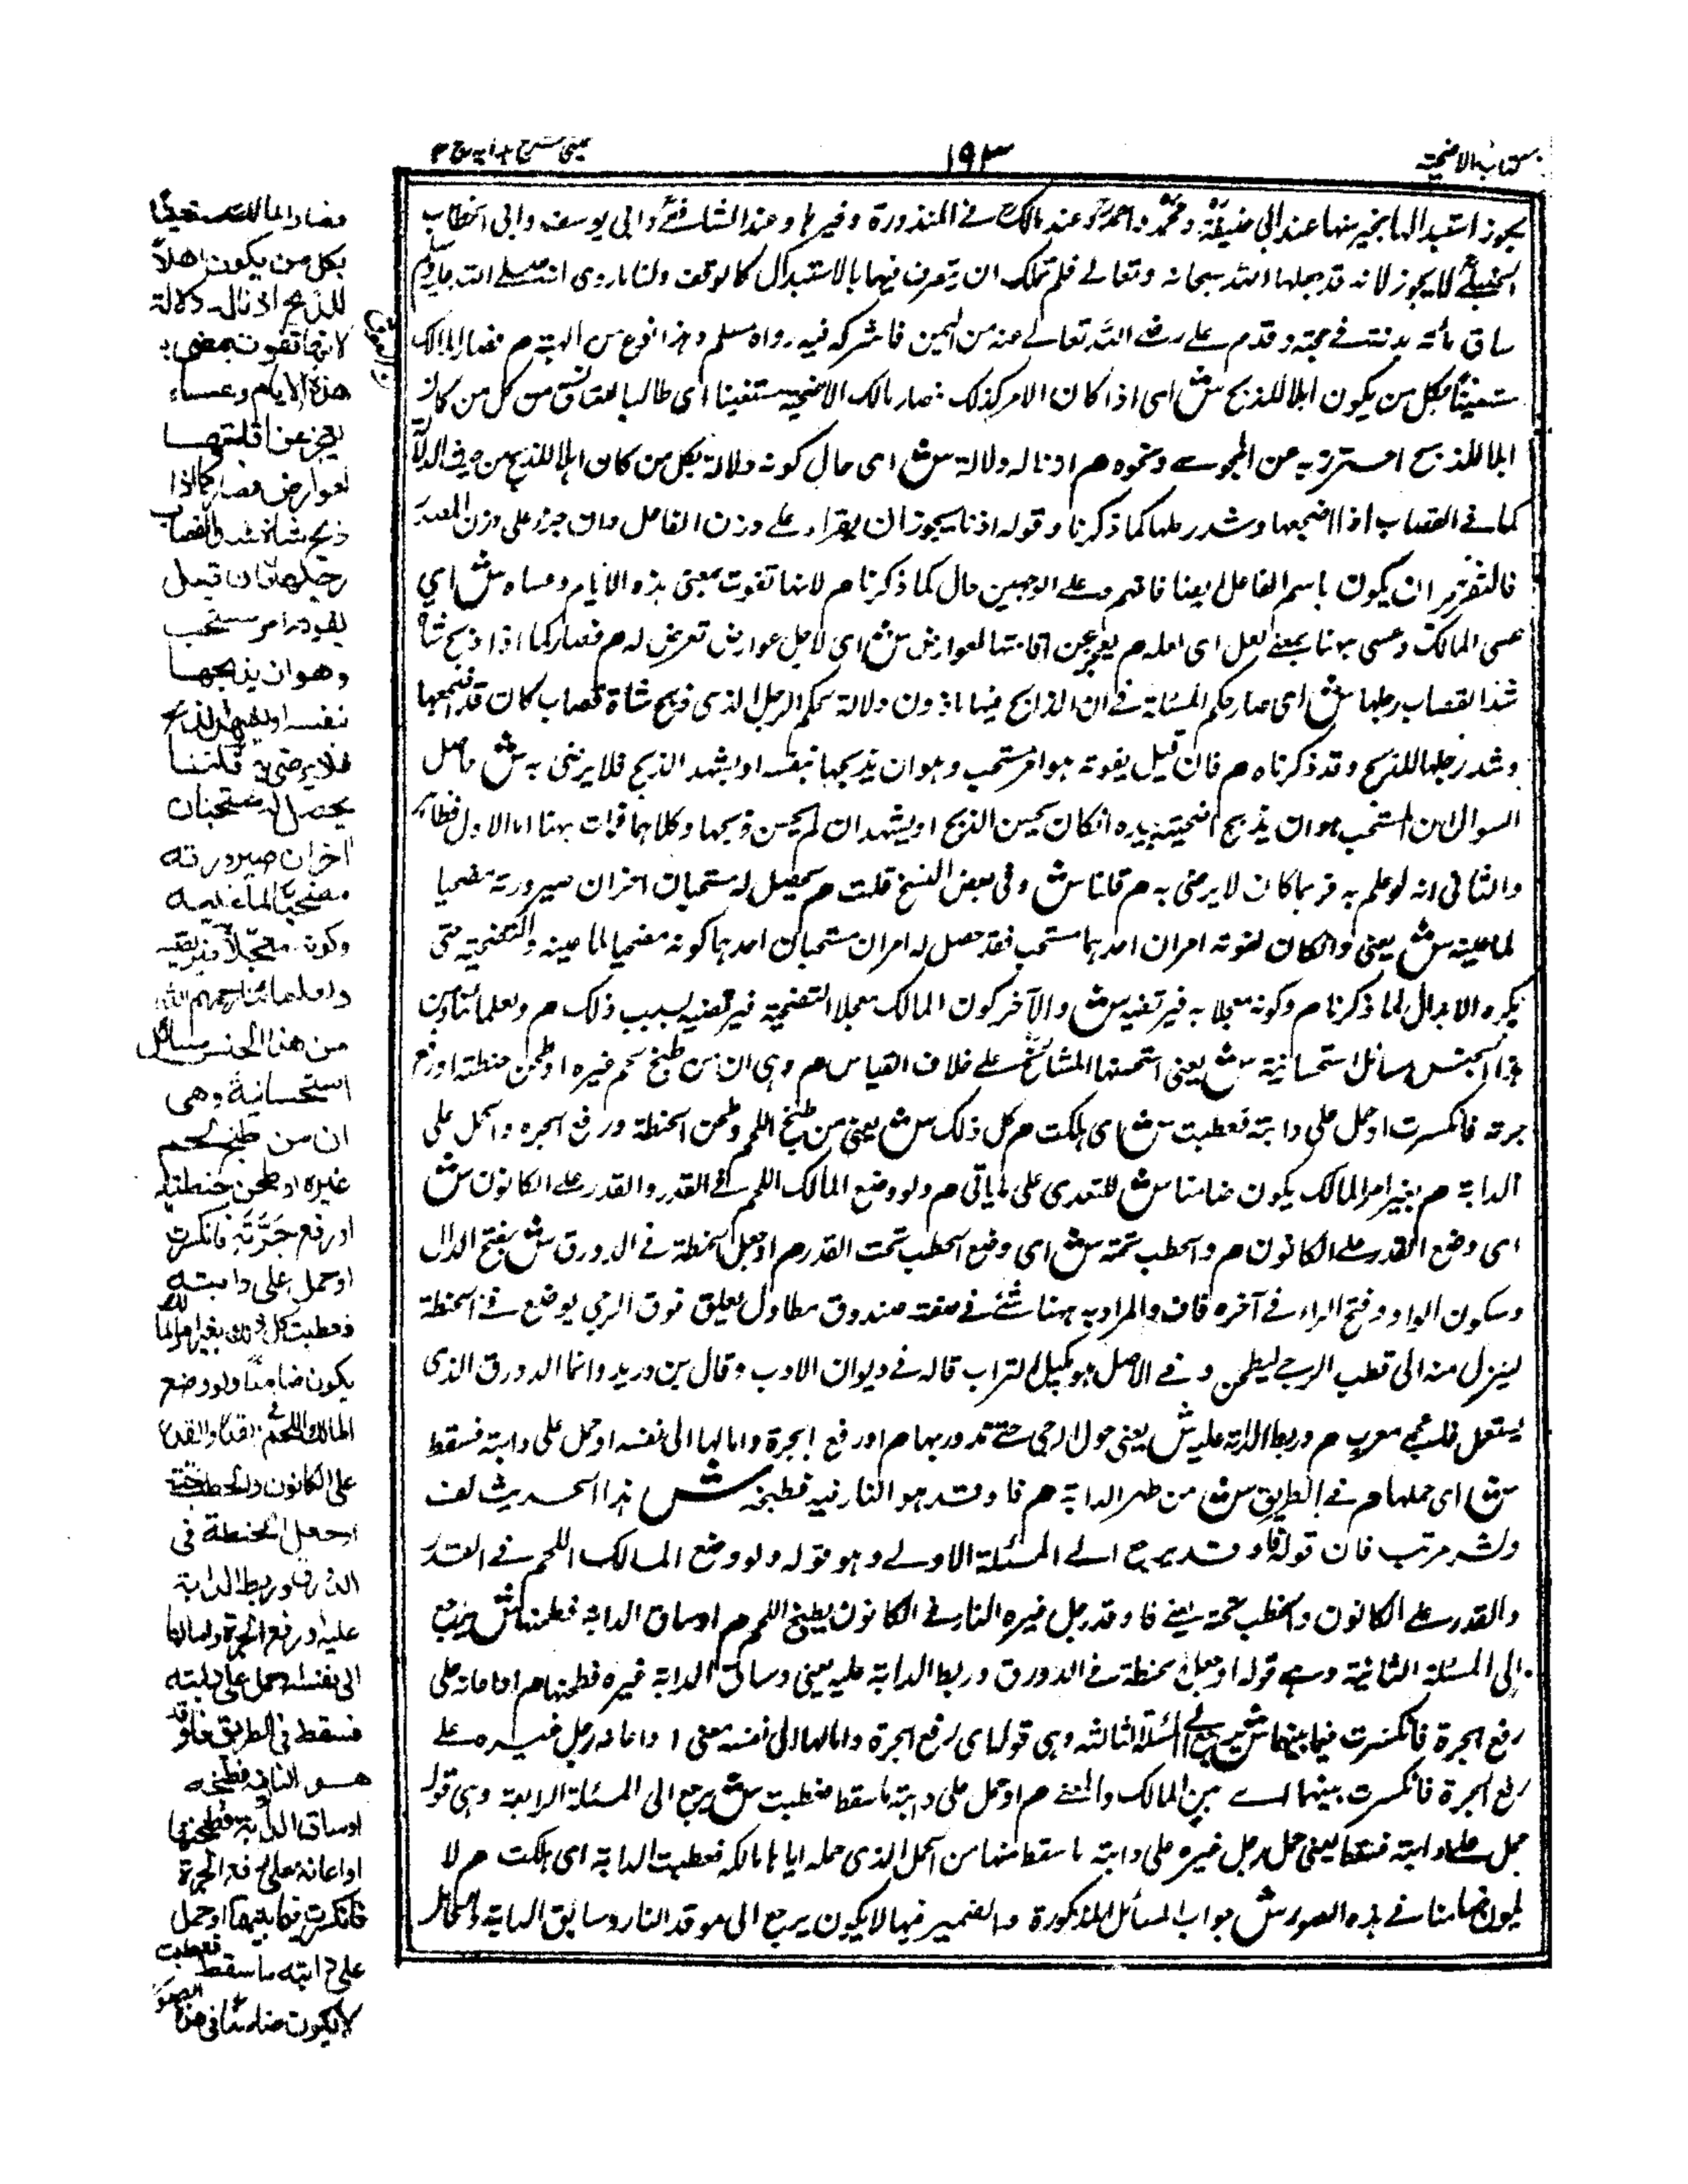 كتاب الاضحية
١٩٣
عينى شرح هدايه ج ٣
يجوز استبدالها بخير منها عند ابى حنيفة ومحمد واحمد وعند مالك فى المنذورة وغيرها وعند الشافعى وابى يوسف وابى الخطاب
الحنبلى لا يجوز لانه قد جعلها الله سبحانه وتعالى فلم تملك ان يتصرف فيها بالاستبدال كالوقف ولنا ما روى انه صلى الله عليه وسلم
ساق مائة بدنة فى حجته وقدم على رضى الله تعالى عنه من اليمن فاشركه فيه رواه مسلم وهذا نوع من الهبة م فصار المالك
مستعينا بكل من يكون اهلا للذبح ش اى اذا كان الامر كذلك فصار مالك الاضحية مستعينا اى طالبا للعتاق من كل من كان
اهلا للذبح احترز به عن المجوسى ونحوه م اذنا له دلالة ش اى حال كونه دلالة بكل من كان اهلا للذبح من حيث الدلالة
كما فى القصاب اذا اضجعها وشد رجلها كما ذكرنا وقوله اذنا يجوز ان يقراء على وزن الفاعل وان جر على وزن المصدر
فالتقرير ان يكون باسم الفاعل ايضا فافهم وعلى الوجهين حال كما ذكرنا م لانها تفوت بمضى هذه الايام وعساه ش اى
عسى المالك وعسى هونا بمعنى لعل اى لعله م يعجز عن اقامتها لعوارض ش اى لاجل عوارض تعرض له م فصار كما اذا ذبح شاة
شد القصاب رجلها ش اى صار حكم المسئلة فى ان الذابح فيها ماذون دلالة كحكم الرجل الذى ذبح شاة قصاب كان قد اضجعها
وشد رجلها للذبح وقد ذكرناه م فان قيل يفوته هو امر مستحب وهو ان يذبحها بنفسه او يشهد الذبح فلا يرضى به ش حاصل
السوال ان المستحب هو ان يذبح اضحيته بيده ان كان يحسن الذبح او يشهد ان لم يحسن ذبحها وكلاهما فات ههنا اما الاول فظاهر
والثانى انه لو علم به فربما كان لا يرضى به م قلنا ش وفى بعض النسخ قلت م يحصل له مستحبان اخران صيرورته مضحيا
لما عينه ش يعنى وان كان لفوته امران احدهما مستحب فقد حصل له امران مستحبان احدهما كونه مضحيا لما عينه والتضحية حتى
يكره الابدال لما ذكرنا م وكونه معجلا به فيرتضيه ش والآخر كون المالك معجلا التضحية فيرتضيه بسبب ذلك م ولعلمائنا من
هذا الجنس مسائل استحسانية ش يعنى استحسنها المشائخ على خلاف القياس م وهى ان من طبخ لحم غيره او طحن حنطته او رفع
جرته فانكسرت او حمل على دابته فعطبت ش اى هلكت م كل ذلك ش يعنى من طبخ اللحم وطحن الحنطة ورفع الجره والحمل على
الدابة م بغير امر المالك يكون ضامنا ش للتعدى على ما ياتى م ولو وضع المالك اللحم فى القدر والقدر على الكانون ش
اى وضع القدر على الكانون م والحطب تحته ش اى وضع الحطب تحت القدر م او جعل الحنطة فى الدورق ش بفتح الدال
وسكون الواو وفتح الراء فى آخره قاف والمراد به ههنا شئ فى صفته صندوق مطاول يعلق فوق الرحى يوضع فيه الحنطة
لينزل منه الى قطب الرحى ليطحن و فى الاصل هو مكيل التراب قاله فى ديوان الادب وقال بن دريد وانما الدورق الذى
يستعمل فلسى معرب م وربط الدابة عليه ش يعنى حول الرحى حتى تدور بها م اورفع الجرة وامالها الى نفسه او حمل على دابته فسقط
ش اى حملها م فى الطريق ش من ظهر الدابة م فاوقد هو النار فيه فطبخه ش هذا الحديث لف
ونشر مرتب فان قوله فاوقد يرجع الى المسئلة الاولى وهو قوله ولو وضع المالك اللحم فى القدر
والقدر على الكانون والحطب تحته يعنى فاوقد رجل غيره النار فى الكانون يطبخ اللحم م اوساق الدابة فطحنها ش يرجع
الى المسئلة الثانية وهى قوله او جعل الحنطة فى الدورق وربط الدابة عليه يعنى وساق الدابة غيره فطحنها م او اعانه على
رفع الجرة فانكسرت فيما بينهما ش يرجع الى المسئلة الثالثه وهى قوله اى رفع الجرة وامالها الى نفسه معنى او اعانه رجل غيره على
رفع الجرة فانكسرت بينهما اى بين المالك والمعين م او حمل على دابته ما سقط فعطبت ش يرجع الى المسئلة الرابعة وهى قوله
حمل على دابته فسقط يعنى حمل رجل غيره على دابته ما سقط منها من الحمل الذى حمله اياها مالكه فعطبت الدابة اى هلكت م لا
يكون ضامنا فى هذه الصور ش جواب المسائل المذكورة والضمير فيها لا يكون يرجع الى موقد النار وسابق الدابة والحامل
فصار المالك مستعينا
بكل من يكون اهلا
للذبح اذنا له دلالة
لانها تفوت بمضى
هذه الايام وعساه
يعجز عن اقامتها
لعوارض فصار كما اذا
ذبح شاة شد القصاب
رجلها فان قيل
يفوته امر مستحب
وهو ان يذبحها
بنفسه او يشهد الذبح
فلا يرضى به قلنا
يحصل له مستحبان
اخران صيرورته
مضحيا لما عينه
وكونه معجلا به فيرتضيه
ولعلمائنا رحمهم الله
من هذا الجنس مسائل
استحسانية وهى
ان من طبخ لحم
غيره او طحن حنطته
او رفع جرته فانكسرت
او حمل على دابته
فعطبت كل ذلك بغير امر المالك
يكون ضامنا ولو وضع
المالك اللحم فى القدر والقدر
على الكانون والحطب تحته
او جعل الحنطة فى
الدورق وربط الدابة
عليه او رفع الجرة وامالها
الى نفسه او حمل على دابته
فسقط فى الطريق فاوقد
هو النار فيه فطبخه
اوساق الدابة فطحنها
او اعانه على رفع الجرة
فانكسرت فيما بينهما او حمل
على دابته ما سقط فعطبت
لا يكون ضامنا فى هذه الصور